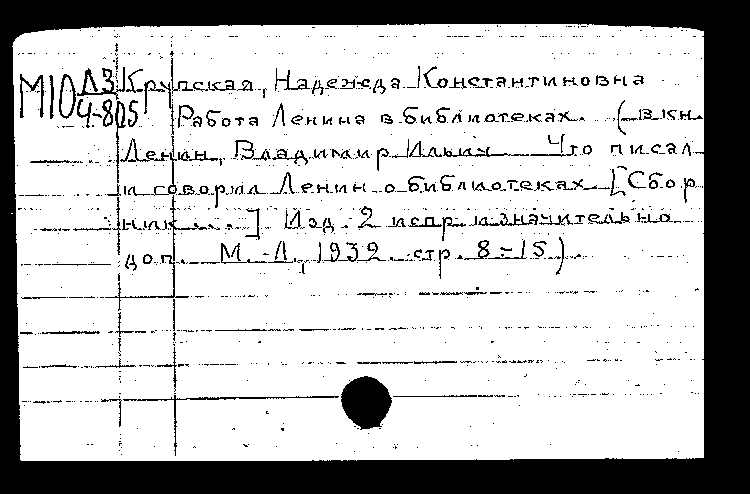 М10 Л3/4-805 Крупская, Надежда Константиновна
Работа Ленина в библиотеках. (в кн.
Ленин, Владимир Ильич. Что писал
и говорил Ленин о библиотеках. [Сбор
ник...] Изд. 2 испр. и значительно
доп. М.-Л., 1932. стр. 8-15).